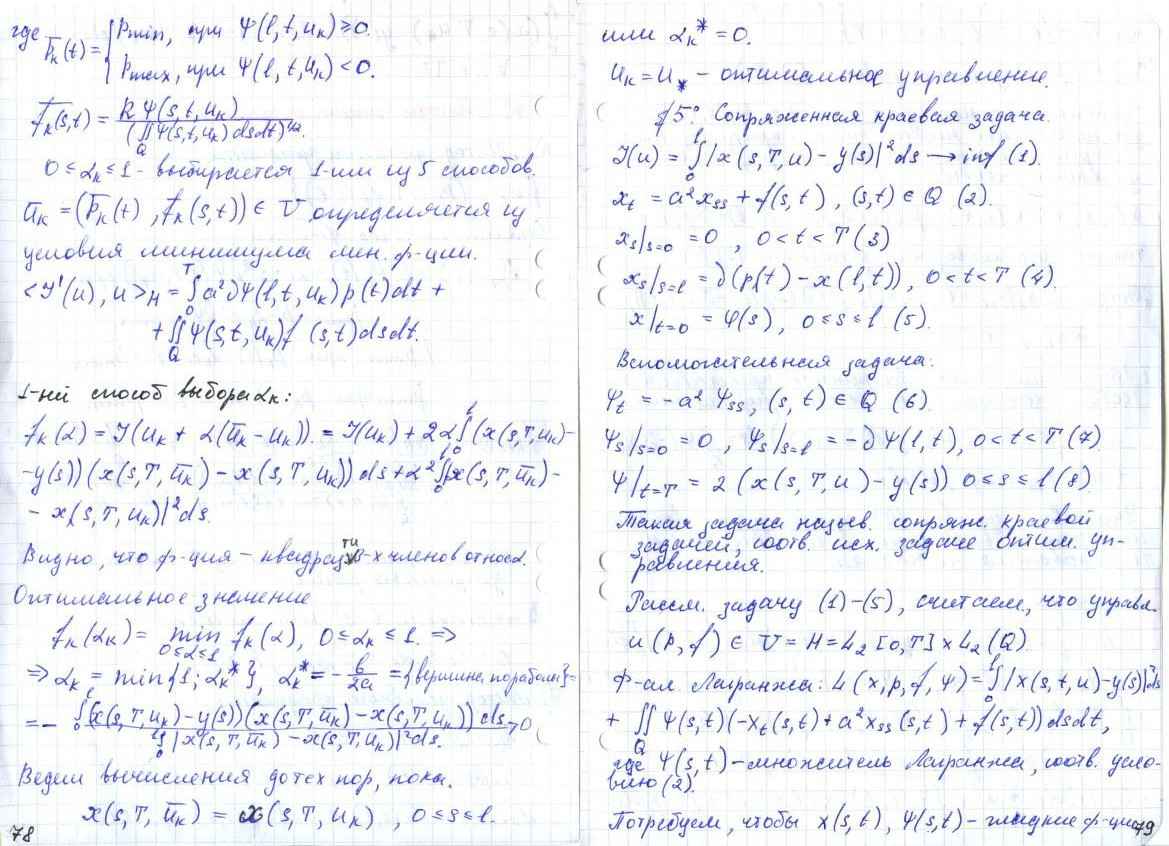 где p̄ₖ(t) = { pmin, при Ψ(l,t,uₖ) ≥ 0.
pmax, при Ψ(l,t,uₖ) < 0.
f̄ₖ(s,t) = R Ψ(s,t,uₖ) / (∬_Q Ψ(s,t,uₖ) dsdt)^½.
0 ≤ αₖ ≤ 1 - выбирается 1-им из 5 способов.
ūₖ = (p̄ₖ(t), f̄ₖ(s,t)) ∈ U определяется из
условия минимума лин. ф-ции.
<J'(u), u>_H = ∫₀ᵀ a²∂Ψ(l,t,uₖ) p(t)dt +
+ ∬_Q Ψ(s,t,uₖ) f (s,t) dsdt.
1-ый способ выбора αₖ:
fₖ(α) = J(uₖ + α(ūₖ - uₖ)). = J(uₖ) + 2α∫₀ˡ (x(s,T,uₖ) -
- y(s)) (x(s,T,ūₖ) - x(s,T,uₖ)) ds + α²∫₀ˡ|x(s,T,ūₖ) -
- x(s,T,uₖ)|² ds.
Видно, что ф-ция - квадрат 3-х членов относ α.
Оптимальное значение
fₖ(αₖ) = min_{0≤α≤1} fₖ(α), 0 ≤ αₖ ≤ 1. =>
=> αₖ = min{1; αₖ*}, αₖ* = - b/2a = {вершина параболы} =
= - ∫₀ˡ (x(s,T,uₖ) - y(s))(x(s,T,ūₖ) - x(s,T,uₖ)) ds / ∫₀ˡ |x(s,T,ūₖ) - x(s,T,uₖ)|² ds. > 0
Ведем вычисления до тех пор, пока.
x(s,T,ūₖ) = x(s,T,uₖ), 0 ≤ s ≤ l.
78
или αₖ* = 0.
uₖ = u* - оптимальное управление.
§5° Сопряженная краевая задача.
J(u) = ∫₀ˡ |x(s,T,u) - y(s)|² ds → inf (1).
xₜ = a² xₛₛ + f(s,t), (s,t) ∈ Q (2).
xₛ|ₛ₌₀ = 0, 0 < t < T (3)
xₛ|ₛ₌ₗ = ∂(p(t) - x(l,t)), 0 < t < T (4).
x|ₜ₌₀ = φ(s), 0 ≤ s ≤ l (5).
Вспомогательная задача:
Ψₜ = -a² Ψₛₛ, (s,t) ∈ Q (6).
Ψₛ|ₛ₌₀ = 0, Ψₛ|ₛ₌ₗ = -∂Ψ(l,t), 0 < t < T (7)
Ψ|ₜ₌T = 2 (x(s,T,u) - y(s)) 0 ≤ s ≤ l (8).
Такая задача назыв. сопряж. краевой
задачей, соотв. исх. задаче оптим. уп-
равления.
Рассм. задачу (1)-(5), считаем, что управл.
u(p,f) ∈ U = H = L₂[0,T] × L₂(Q).
Ф-ал. Лагранжа: L(x,p,f,Ψ) = ∫₀ˡ |x(s,t,u) - y(s)|² ds
+ ∬_Q Ψ(s,t)(-xₜ(s,t) + a² xₛₛ(s,t) + f(s,t)) dsdt,
где Ψ(s,t) - множитель Лагранжа, соотв. усло-
вию (2).
Потребуем, чтобы x(s,t), Ψ(s,t) - гладкие ф-ции
79